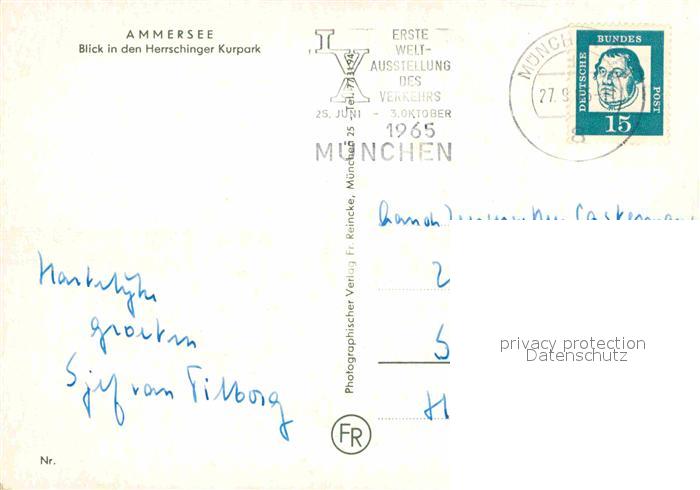 AMMERSEE
Blick in den Herrschinger Kurpark
IV
ERSTE
WELT-
AUSSTELLUNG
DES
VERKEHRS
25. JUNI - 3. OKTOBER
1965
MÜNCHEN
MÜNCH
27.9.
8
DEUTSCHE
BUNDES
POST
15
Photographischer Verlag Fr. Reincke, München 25 - Tel.
Hartelijke
groeten
Sjef van Tilborg
S
H
privacy protection
Datenschutz
FR
Nr.